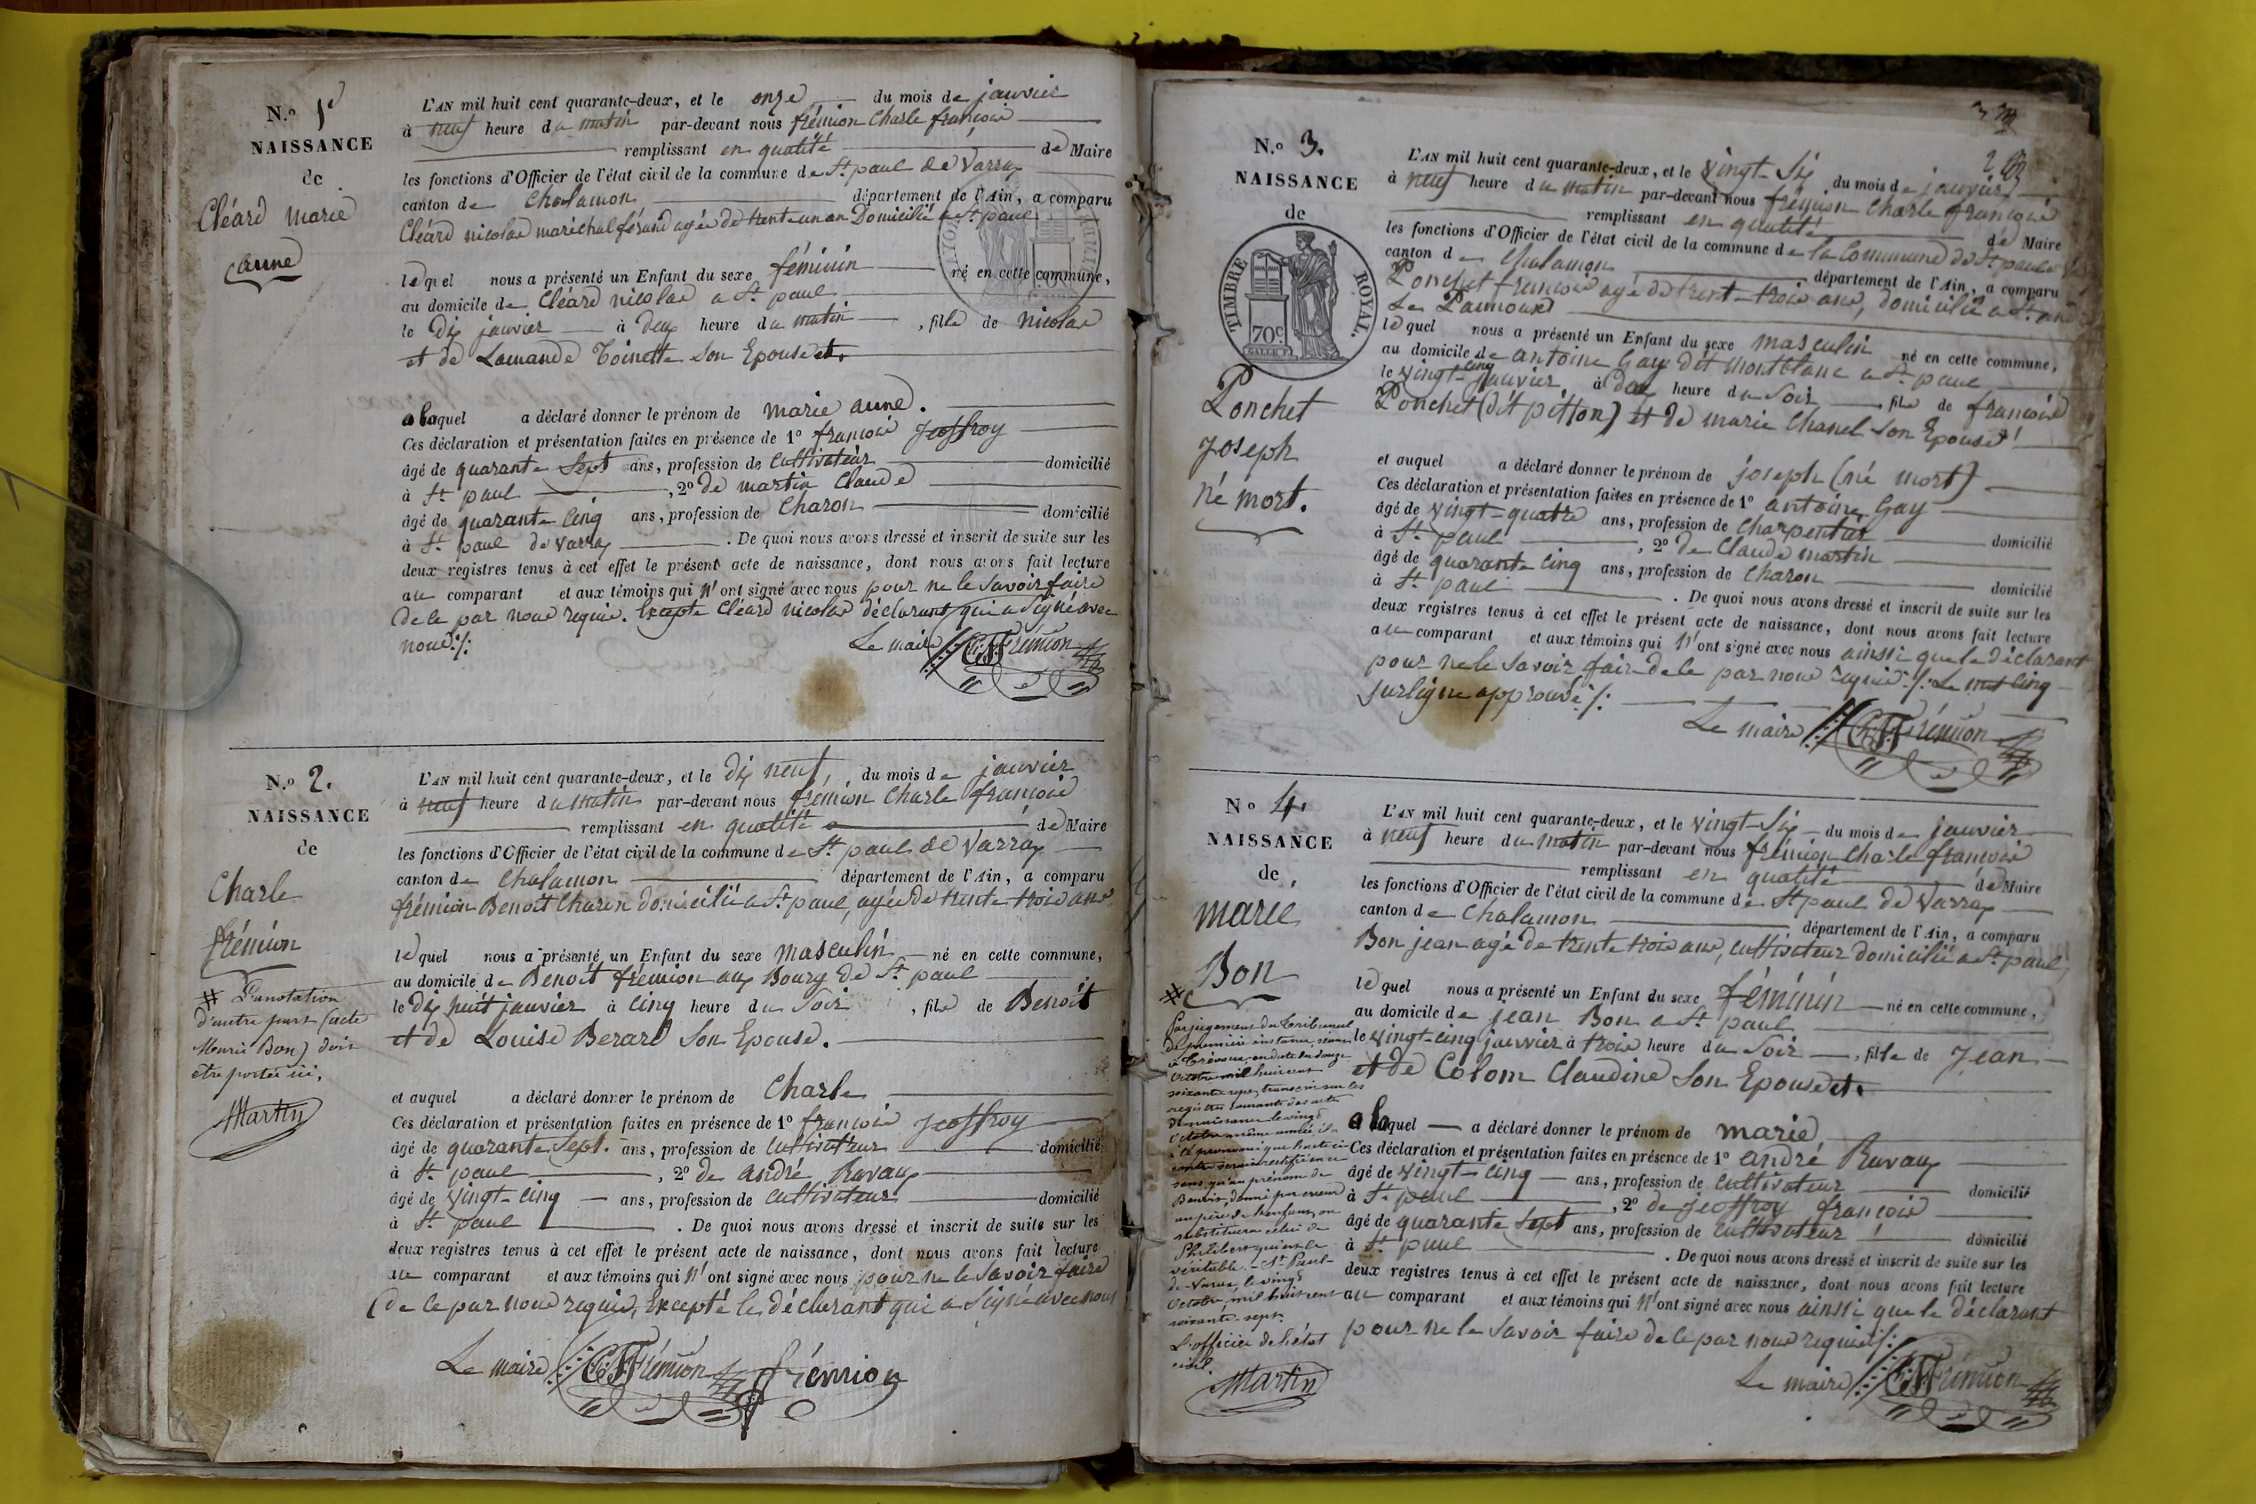 N.º 1er
NAISSANCE
de
Cléard marie
anne
L'AN mil huit cent quarante-deux, et le onze du mois de janvier
à neuf heure du matin par-devant nous frémion Charle françois
remplissant en qualité de Maire
les fonctions d'Officier de l'état civil de la commune de St paul de Varax
canton de Chalamon département de l'Ain, a comparu
Cléard nicolas maréchal férand agée de trente un an Domicilié a St paul
lequel nous a présenté un Enfant du sexe féminin né en cette commune,
au domicile de Cléard nicolas a St paul
le dix janvier à deux heure du matin, fille de nicolas
et de Lamande Toinette son Epouse et.
a laquel a déclaré donner le prénom de marie anne.
Ces déclaration et présentation faites en présence de 1º françois Jeoffroy
âgé de quarante Sept ans, profession de Cultivateur domicilié
à St paul, 2º de martin Claude
âgé de quarante Cinq ans, profession de Charon domicilié
à St paul de Varax. De quoi nous avons dressé et inscrit de suite sur les
deux registres tenus à cet effet le présent acte de naissance, dont nous avons fait lecture
au comparant et aux témoins qui n'ont signé avec nous pour ne le Savoir faire
de ce par nous requis. Excepte Cléard nicolas déclarant qui a Signé avec
nous./.
Le maire CF Frémion
N.º 2.
NAISSANCE
de
Charle
frémion
# L'anotation
d'autre part (acte
Marie Bon) doit
être portée ici,
Martin
L'AN mil huit cent quarante-deux, et le dix neuf, du mois de janvier
à neuf heure du matin par-devant nous frémion Charle françois
remplissant en qualité de Maire
les fonctions d'Officier de l'état civil de la commune de St paul de Varax
canton de Chalamon département de l'Ain, a comparu
frémion Benoît Charon domicilié a St paul, agée de trente trois ans
lequel nous a présenté un Enfant du sexe masculin né en cette commune,
au domicile de Benoît frémion aux Bourg de St paul
le dix huit janvier à cinq heure du Soir, fils de Benoît
et de Louise Berard Son Epouse.
et auquel a déclaré donner le prénom de Charle
Ces déclaration et présentation faites en présence de 1º françois Jeoffroy
âgé de quarante Sept. ans, profession de Cultivateur domicilié
à St paul, 2º de andré Ravaux
âgé de vingt-cinq ans, profession de cultivateur domicilié
à St paul. De quoi nous avons dressé et inscrit de suite sur les
deux registres tenus à cet effet le présent acte de naissance, dont nous avons fait lecture
au comparant et aux témoins qui n'ont signé avec nous pour ne le Savoir faire
de ce par nous requis, Excepté le déclarant qui a Signé avec nous
Le maire CF Frémion frémion
N.º 3.
NAISSANCE
de
TIMBRE ROYAL.
70c
Ponchet
Joseph
né mort.
L'AN mil huit cent quarante-deux, et le vingt-Six du mois de janvier
à neuf heure du matin par-devant nous frémion Charle françois
remplissant en qualité de Maire
les fonctions d'Officier de l'état civil de la commune de la Commune de St paul
canton de Chalamon département de l'Ain, a comparu
Ponchet françois agé de trente-trois ans, domicilié a St andré
Le Panoux
lequel nous a présenté un Enfant du sexe masculin né en cette commune,
au domicile de antoine Gay dit montblanc a St paul
le vingt-cinq janvier à deux heure du Soir fils de françois
Ponchet (dit pitton) et de marie Chanel son Epouse
et auquel a déclaré donner le prénom de joseph (né mort)
Ces déclaration et présentation faites en présence de 1º antoine Gay
âgé de vingt-quatre ans, profession de Charpentier domicilié
à St paul, 2º de Claude martin
âgé de quarante cinq ans, profession de Charon domicilié
à St paul. De quoi nous avons dressé et inscrit de suite sur les
deux registres tenus à cet effet le présent acte de naissance, dont nous avons fait lecture
au comparant et aux témoins qui n'ont signé avec nous ainssi que le déclarant
pour ne le Savoir faire de ce par nous requis./. Le mot cinq
surligne approuvé./.
Le maire CF Frémion
Nº 4.
NAISSANCE
de
marie
Bon
#
Par jugement du Tribunal
de première instance, séant
à Trévoux, en date du douze
Octobre mil huit cent
soixante-sept, transcrit sur les
registres courants des actes
de naissance le vingt
Octobre même année, il a
été prononcé que l'acte ci
contre serait rectifié en ce
sens qu'au prénom de
Benoit, donné par erreur
au père de l'enfant, on
substituera celui de
Philibert qui est le
véritable. - St Paul-
de-Varax, le vingt
Octobre mil huit cent
soixante-sept.
L'officier de l'état
civil.
Martin
L'AN mil huit cent quarante-deux, et le vingt-Six du mois de janvier
à neuf heure du matin par-devant nous frémion Charle françois
remplissant en qualité de Maire
les fonctions d'Officier de l'état civil de la commune de St paul de Varax
canton de Chalamon département de l'Ain, a comparu
Bon jean agé de trente trois ans, cultivateur domicilié a St paul,
lequel nous a présenté un Enfant du sexe féminin né en cette commune,
au domicile de jean Bon a St paul
le vingt-cinq janvier à trois heure du Soir, fille de Jean
et de Colom Claudine Son Epouse et.
a laquel a déclaré donner le prénom de marie
Ces déclaration et présentation faites en présence de 1º andré Ravaux
âgé de vingt-cinq ans, profession de cultivateur domicilié
à St paul, 2º de jeoffroy françois
âgé de quarante Sept ans, profession de Cultivateur domicilié
à St paul. De quoi nous avons dressé et inscrit de suite sur les
deux registres tenus à cet effet le présent acte de naissance, dont nous avons fait lecture
au comparant et aux témoins qui n'ont signé avec nous ainssi que le déclarant
pour ne le Savoir faire de ce par nous requis./.
Le maire CF Frémion